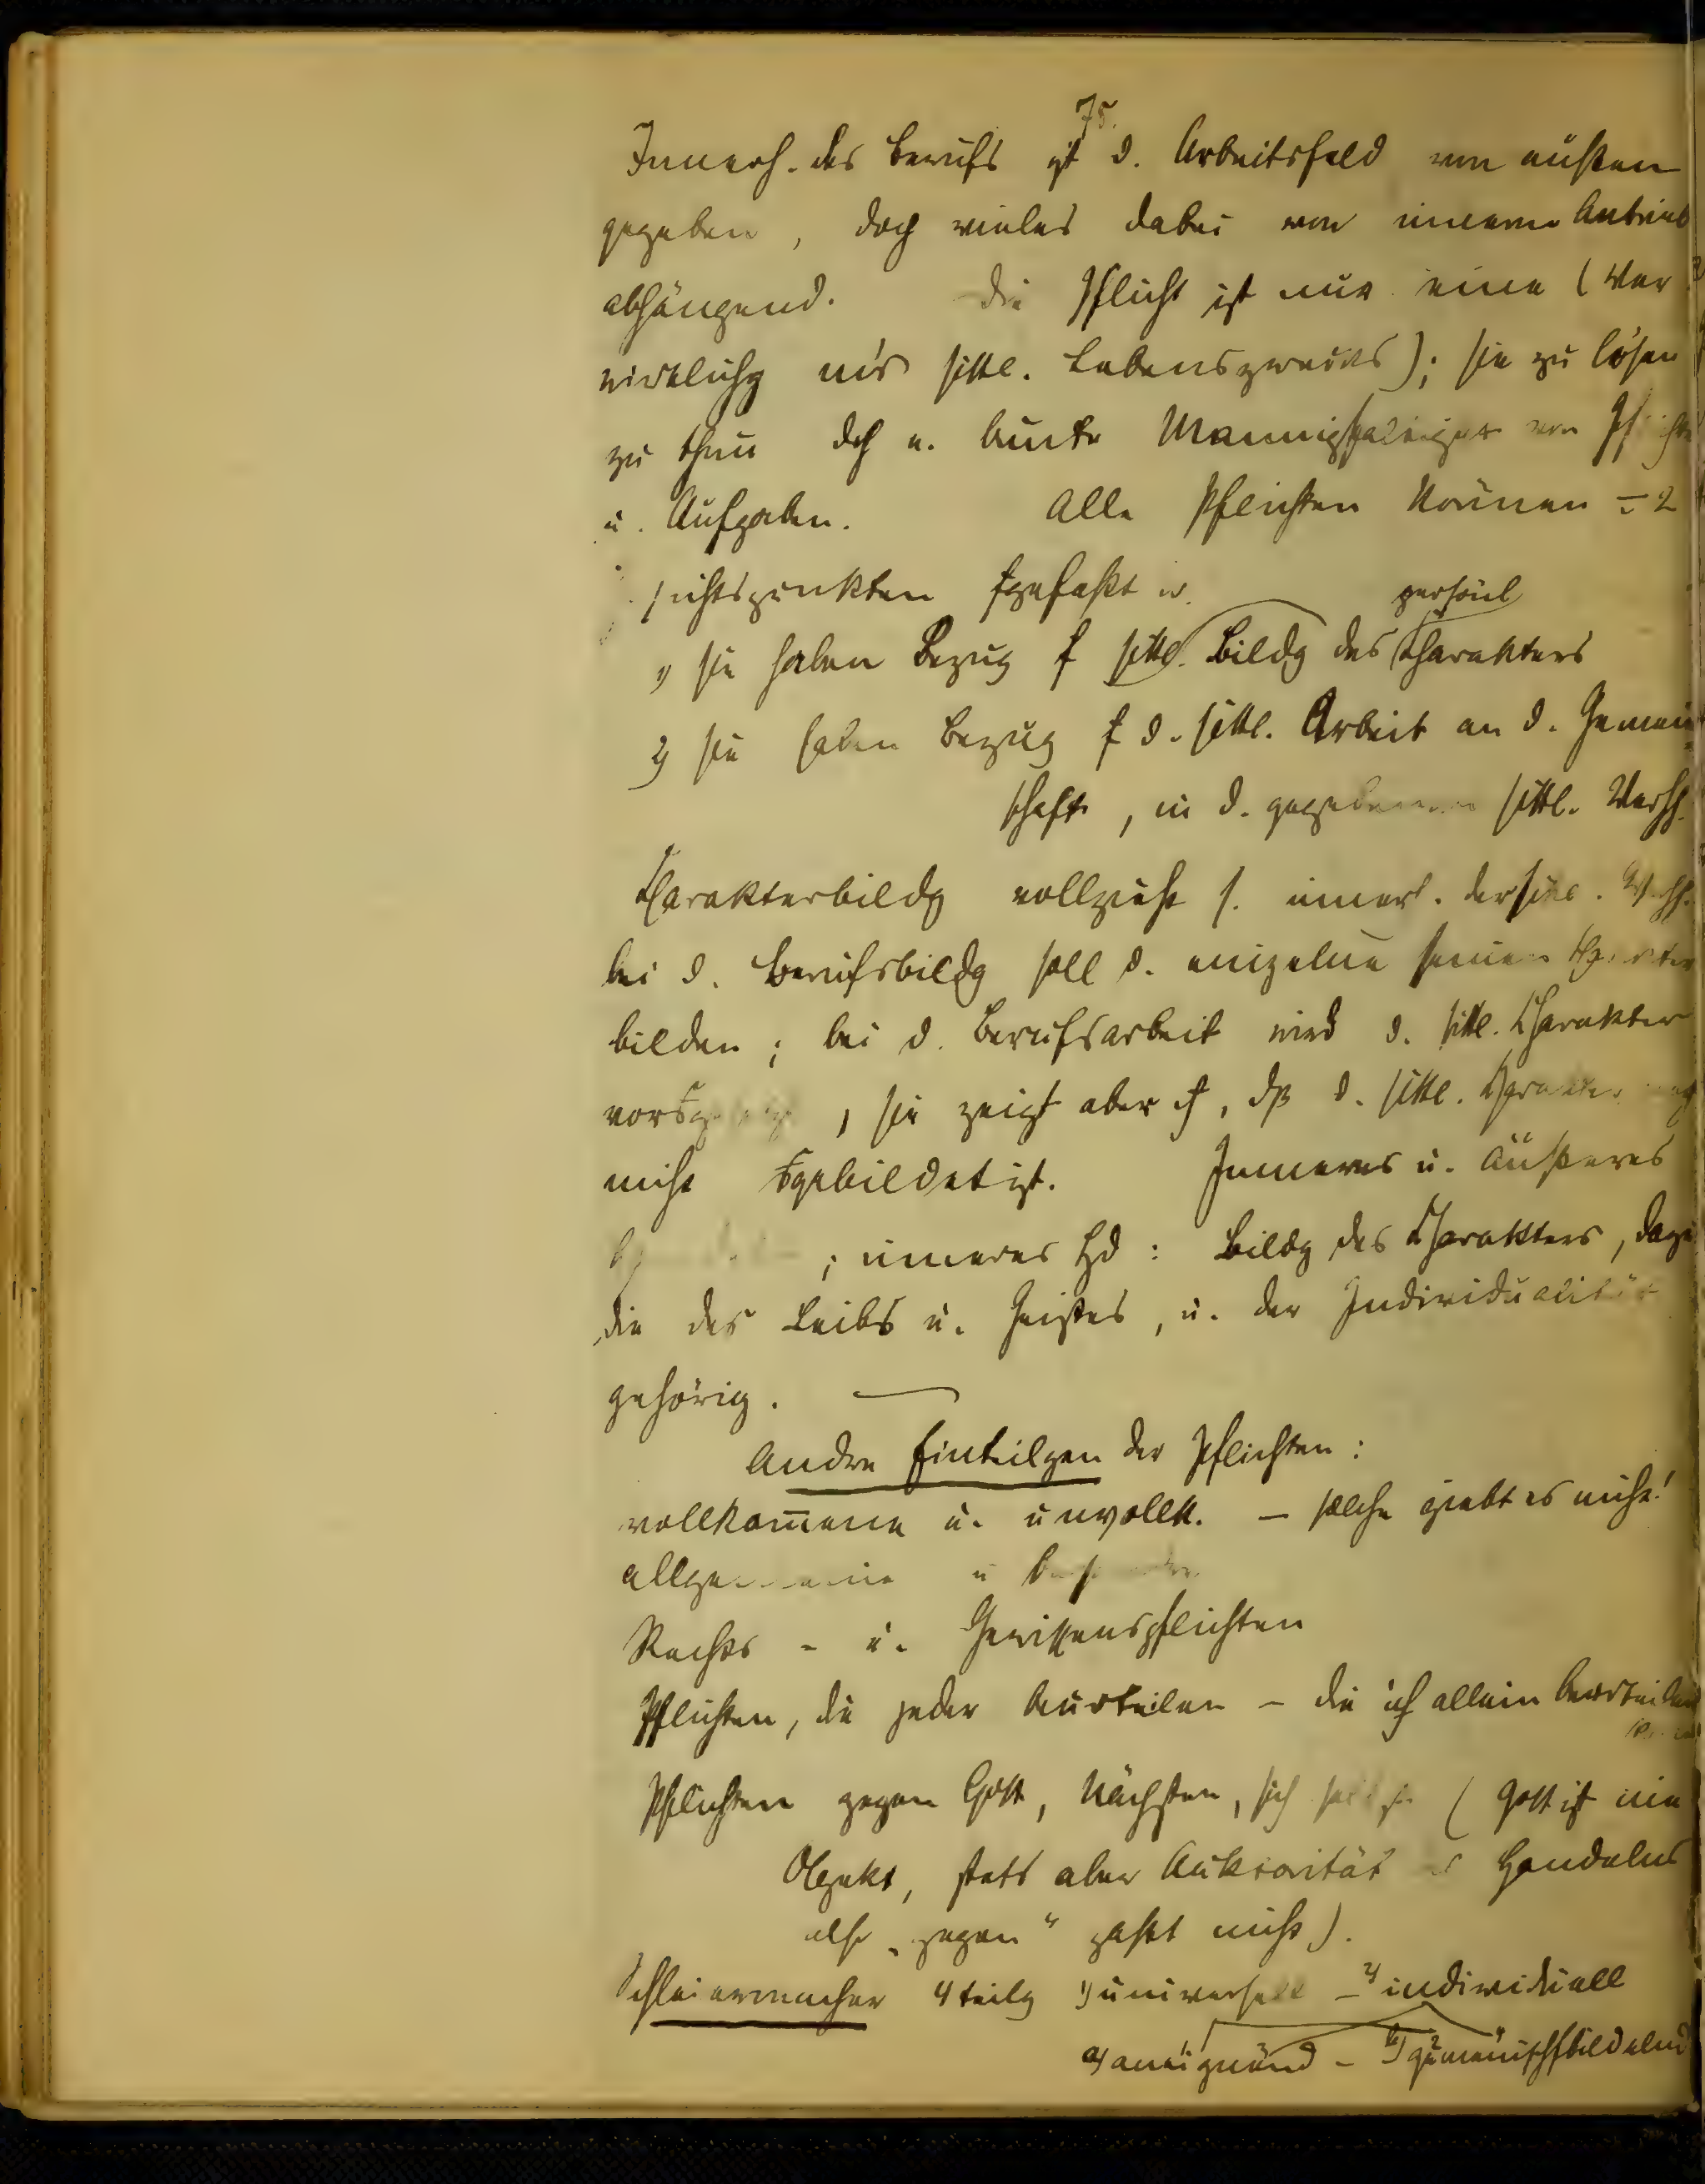 75.
Innerh. des Berufs ist d. Arbeitsfeld von außen
gegeben, doch vieles dabei von innerem Antrieb
abhängend. Die Pflicht ist nur eine (Ver
wirklichg uns sittl. Lebenszwecks); sie zu lösen
zu thun doch e. bunte Mannigfaltigkt von Pflichten
u. Aufgaben. Alle Pflichten können 2
sichtspunkten gefaßt w.
persönl
1) sie haben Bezug f sittl. Bildg des Charakters
2) sie haben Bezug f d. sittl. Arbeit an d. Gemein
schaft, in d. gegebenen sittl. Verhh.
Charakterbildg vollzieht s. innerh. der sittl. Verhh.
bei d. Berufsbildg soll d. einzelne seinen Charakter
bilden; bei d. Berufsarbeit wird d. sittl. Charakter
, sie zeigt aber oft, dß d. sittl. Charakter noch
nicht gebildet ist. Inneres u. äußeres
; inneres Hd: Bildg des Charakters, dazu
die des Leibs u. Geistes, u. der Individualität
gehörig.
Andre Einteilgen der Pflichten:
vollkom̅ene u. unvollk. – solche giebt es nicht!
allgemeine u besondre
Rechts- u. Gewissenspflichten
Pflichten, die jeder beurteilen – die ich allein beurteilen
Pflichten gegen Gott, Nächsten, sich selbst (Gott ist nie
Objekt, stets aber Auktorität Handelns
also „gegen“ paßt nicht).
Schleiermacher 4teilg 1) universell – 2) individuell
a) aneignend – b) gemeinschftbildend